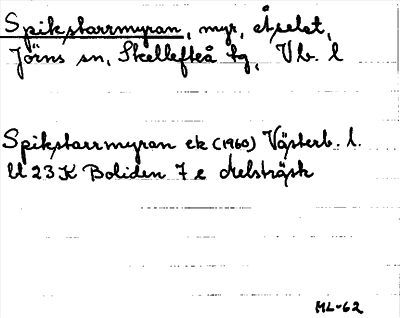 Spikstarrmyran, myr, Åselet,
Jörns sn, Skellefteå tg, Vb. l
Spikstarrmyran ek (1960) Västerb. l.
U 23 K Boliden 7 e
ML-62